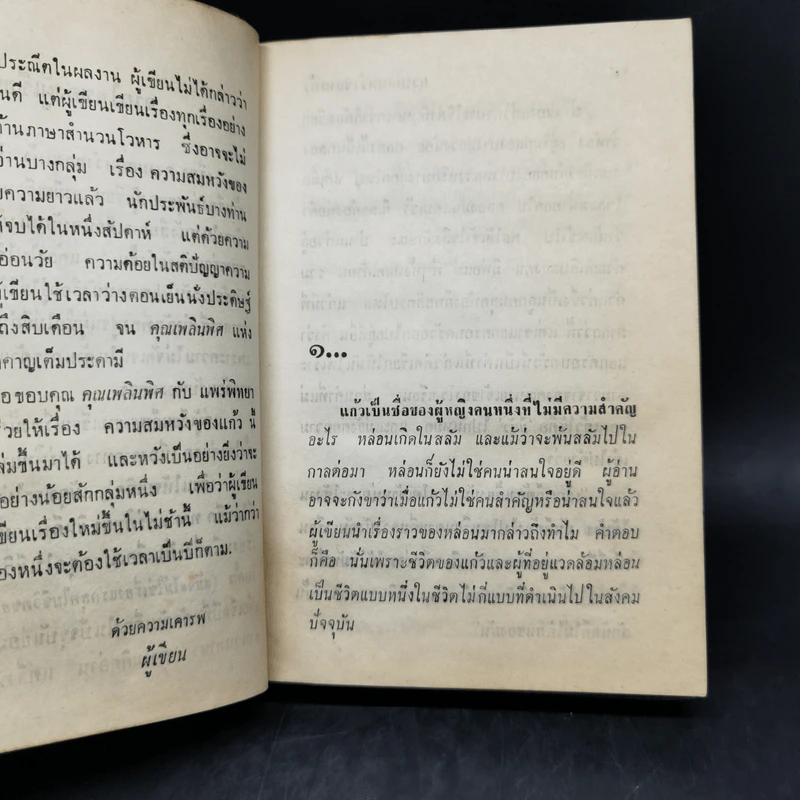 ประณีตในผลงาน ผู้เขียนไม่ได้กล่าวว่า
นดี แต่ผู้เขียนเขียนเรื่องทุกเรื่องอย่าง
ด้านภาษาสำนวนโวหาร ซึ่งอาจจะไม่
อ่านบางกลุ่ม เรื่อง ความสมหวังของ
ยความยาวแล้ว นักประพันธ์บางท่าน
ห้จบได้ในหนึ่งสัปดาห์ แต่ด้วยความ
อ่อนวัย ความด้อยในสติปัญญาความ
ผู้เขียนใช้เวลาว่างตอนเย็นนั่งประดิษฐ์
ถึงสิบเดือน จน คุณเพลินพิศ แห่ง
คาญเต็มประดามี
อขอบคุณ คุณเพลินพิศ กับ แพร่พิทยา
วยให้เรื่อง ความสมหวังของแก้ว นี้
ล่มขึ้นมาได้ และหวังเป็นอย่างยิ่งว่าจะ
อย่างน้อยสักกลุ่มหนึ่ง เพื่อว่าผู้เขียน
ขียนเรื่องใหม่ขึ้นในไม่ช้านี้ แม้ว่ากว่า
องหนึ่งจะต้องใช้เวลาเป็นปีก็ตาม.
ด้วยความเคารพ
ผู้เขียน
๑...
แก้วเป็นชื่อของผู้หญิงคนหนึ่งที่ไม่มีความสำคัญ
อะไร หล่อนเกิดในสลัม และแม้ว่าจะพ้นสลัมไปใน
กาลต่อมา หล่อนก็ยังไม่ใช่คนน่าสนใจอยู่ดี ผู้อ่าน
อาจจะกังขาว่าเมื่อแก้วไม่ใช่คนสำคัญหรือน่าสนใจแล้ว
ผู้เขียนนำเรื่องราวของหล่อนมากล่าวถึงทำไม คำตอบ
ก็คือ นั่นเพราะชีวิตของแก้วและผู้ที่อยู่แวดล้อมหล่อน
เป็นชีวิตแบบหนึ่งในชีวิตไม่กี่แบบที่ดำเนินไปในสังคม
ปัจจุบัน